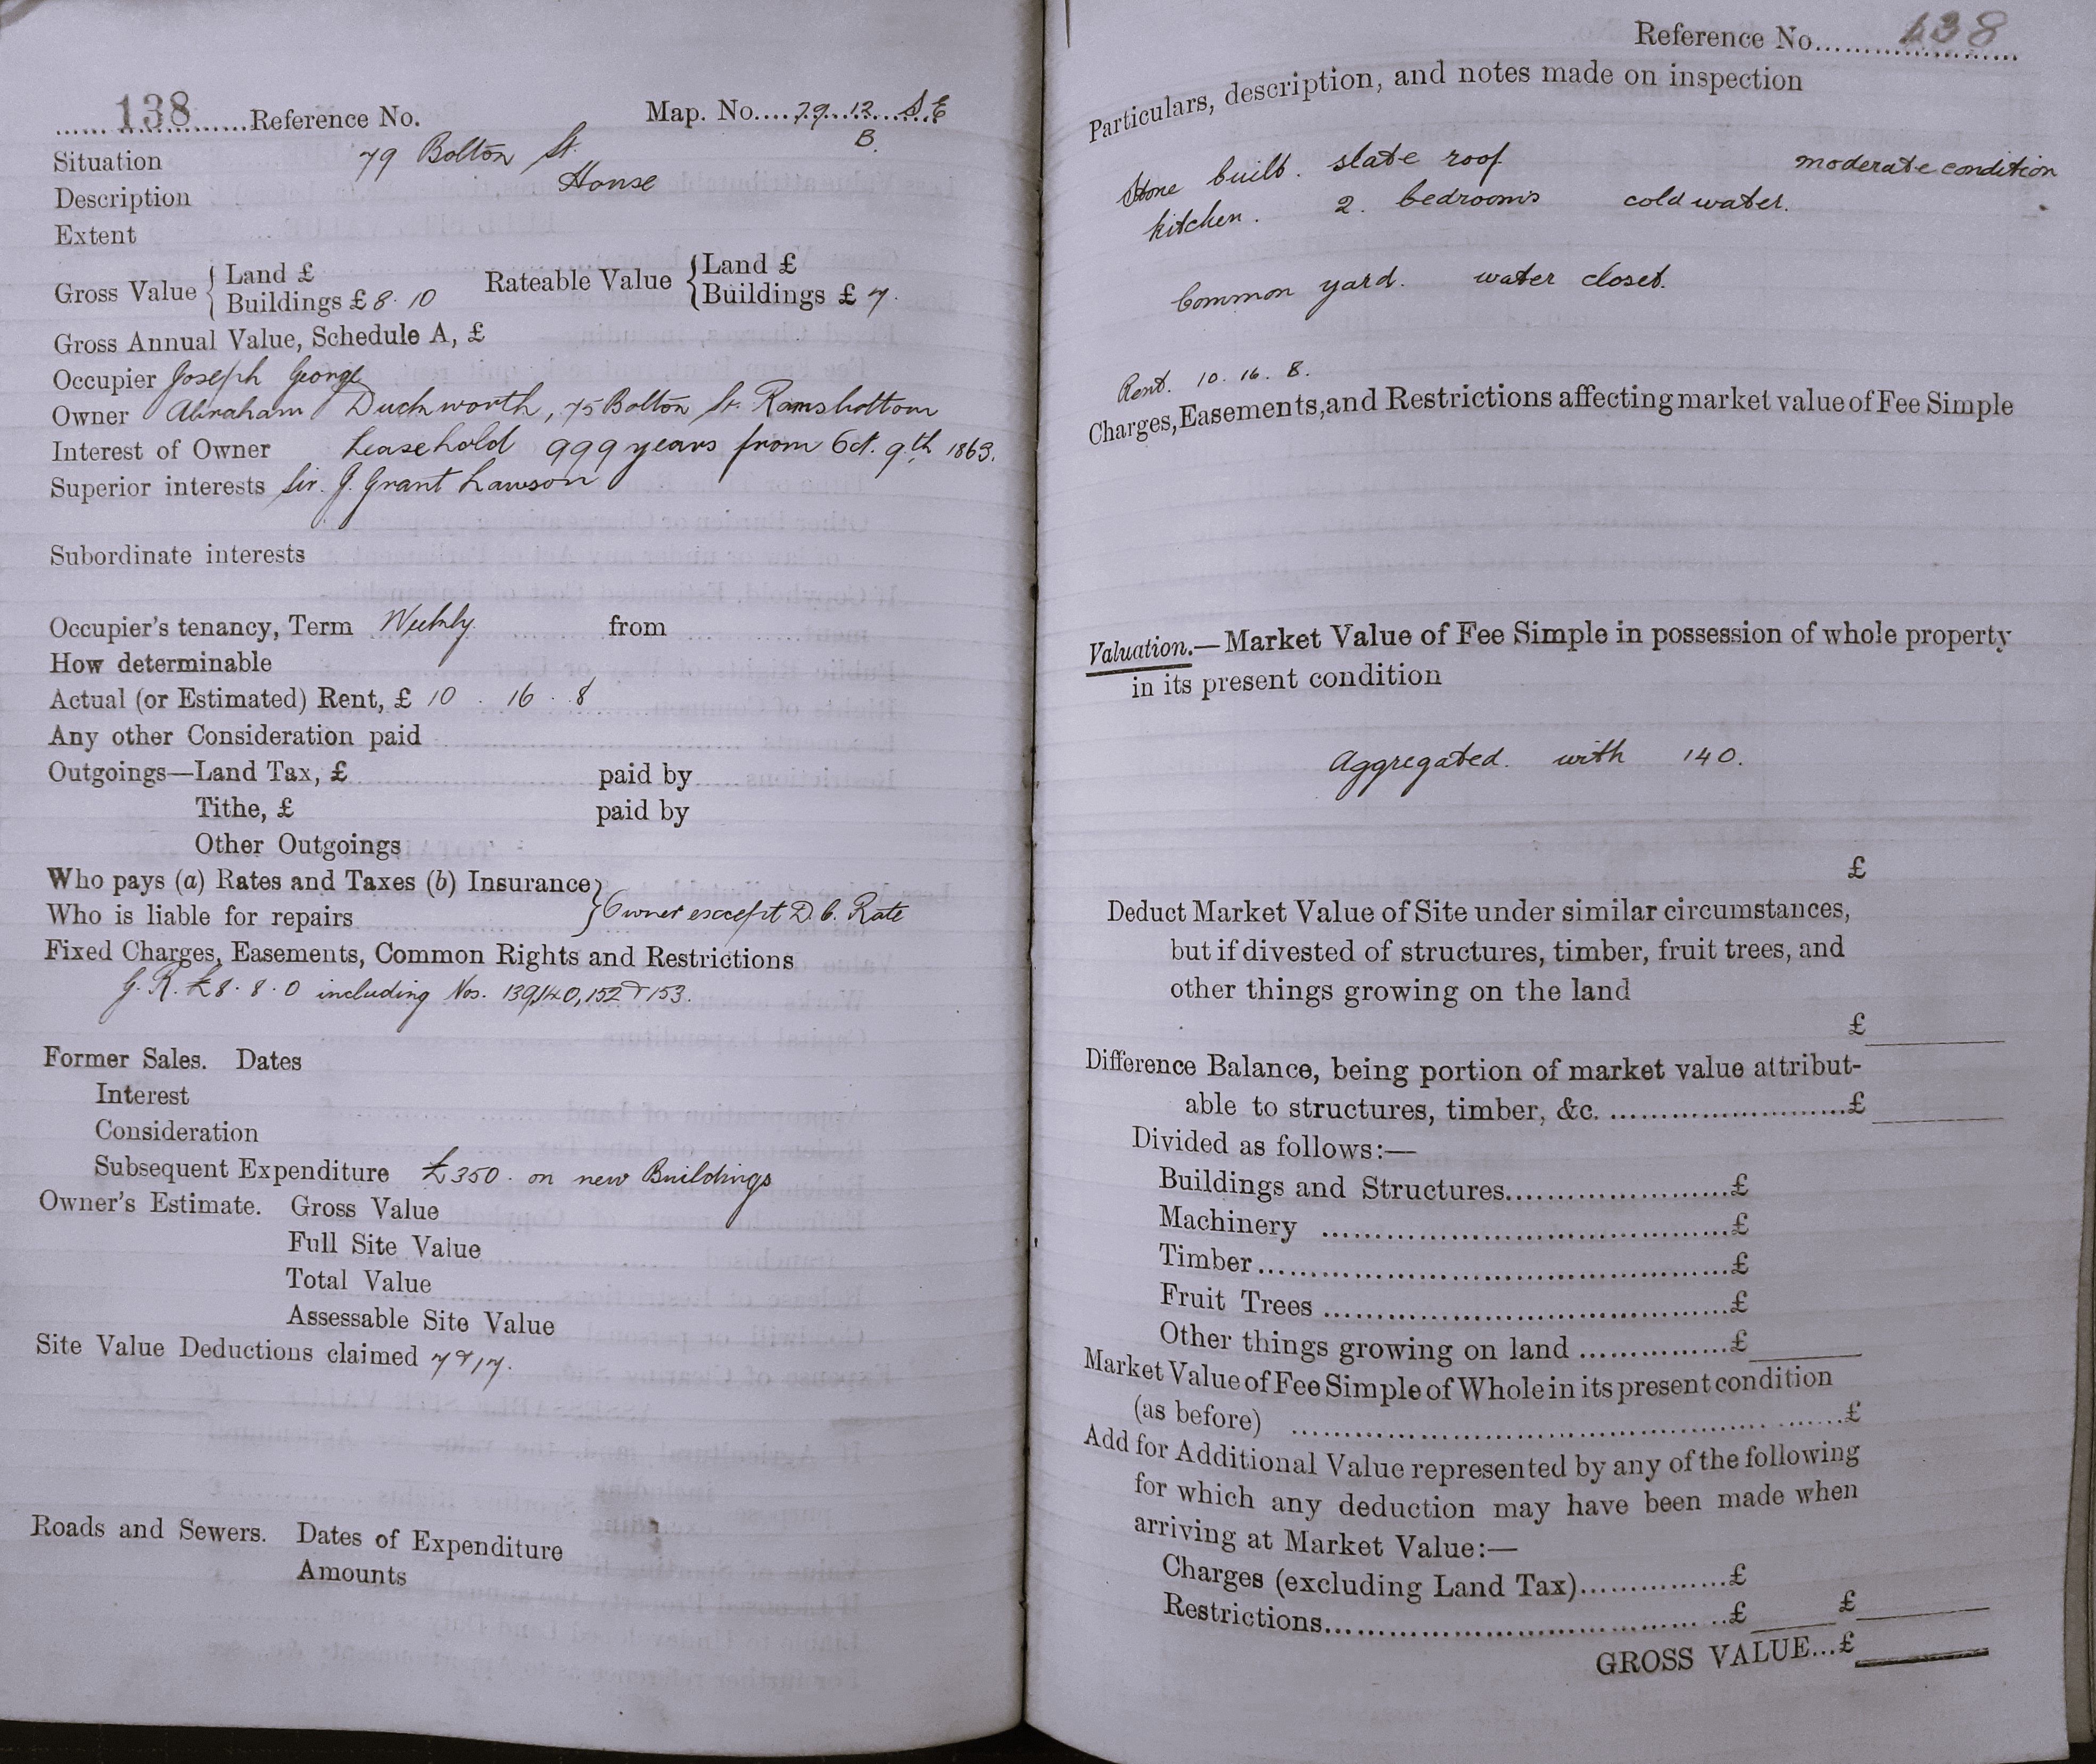 138 Reference No. Map. No. 79. 12. S.E
B.
Situation 79 Bolton St.
Description House
Extent
Gross Value { Land £
Buildings £ 8. 10
Rateable Value { Land £
Buildings £ 7.
Gross Annual Value, Schedule A, £
Occupier Joseph George
Owner Abraham Duckworth, 75 Bolton St. Ramsbottom
Interest of Owner Leasehold 999 years from Oct. 9th 1863.
Superior interests Sir. J. Grant Lawson
Subordinate interests
Occupier's tenancy, Term Weekly from
How determinable
Actual (or Estimated) Rent, £ 10 . 16 . 8
Any other Consideration paid
Outgoings—Land Tax, £ paid by
Tithe, £ paid by
Other Outgoings
Who pays (a) Rates and Taxes (b) Insurance }
Who is liable for repairs } Owner except D. C. Rate
Fixed Charges, Easements, Common Rights and Restrictions
G. R. £8. 8. 0 including Nos. 139, 140, 152 & 153.
Former Sales. Dates
Interest
Consideration
Subsequent Expenditure £350. on new Buildings
Owner's Estimate. Gross Value
Full Site Value
Total Value
Assessable Site Value
Site Value Deductions claimed 7 & 17.
Roads and Sewers. Dates of Expenditure
Amounts
Reference No. 138
Particulars, description, and notes made on inspection
Stone built. slate roof moderate condition
kitchen. 2. bedrooms cold water.
Common yard. water closet.
Rent. 10. 16. 8.
Charges, Easements, and Restrictions affecting market value of Fee Simple
Valuation.—Market Value of Fee Simple in possession of whole property
in its present condition
Aggregated. with 140.
£
Deduct Market Value of Site under similar circumstances,
but if divested of structures, timber, fruit trees, and
other things growing on the land
£
Difference Balance, being portion of market value attribut-
able to structures, timber, &c. £
Divided as follows:—
Buildings and Structures £
Machinery £
Timber £
Fruit Trees £
Other things growing on land £
Market Value of Fee Simple of Whole in its present condition
(as before) £
Add for Additional Value represented by any of the following
for which any deduction may have been made when
arriving at Market Value:—
Charges (excluding Land Tax) £
Restrictions £ £
GROSS VALUE...£